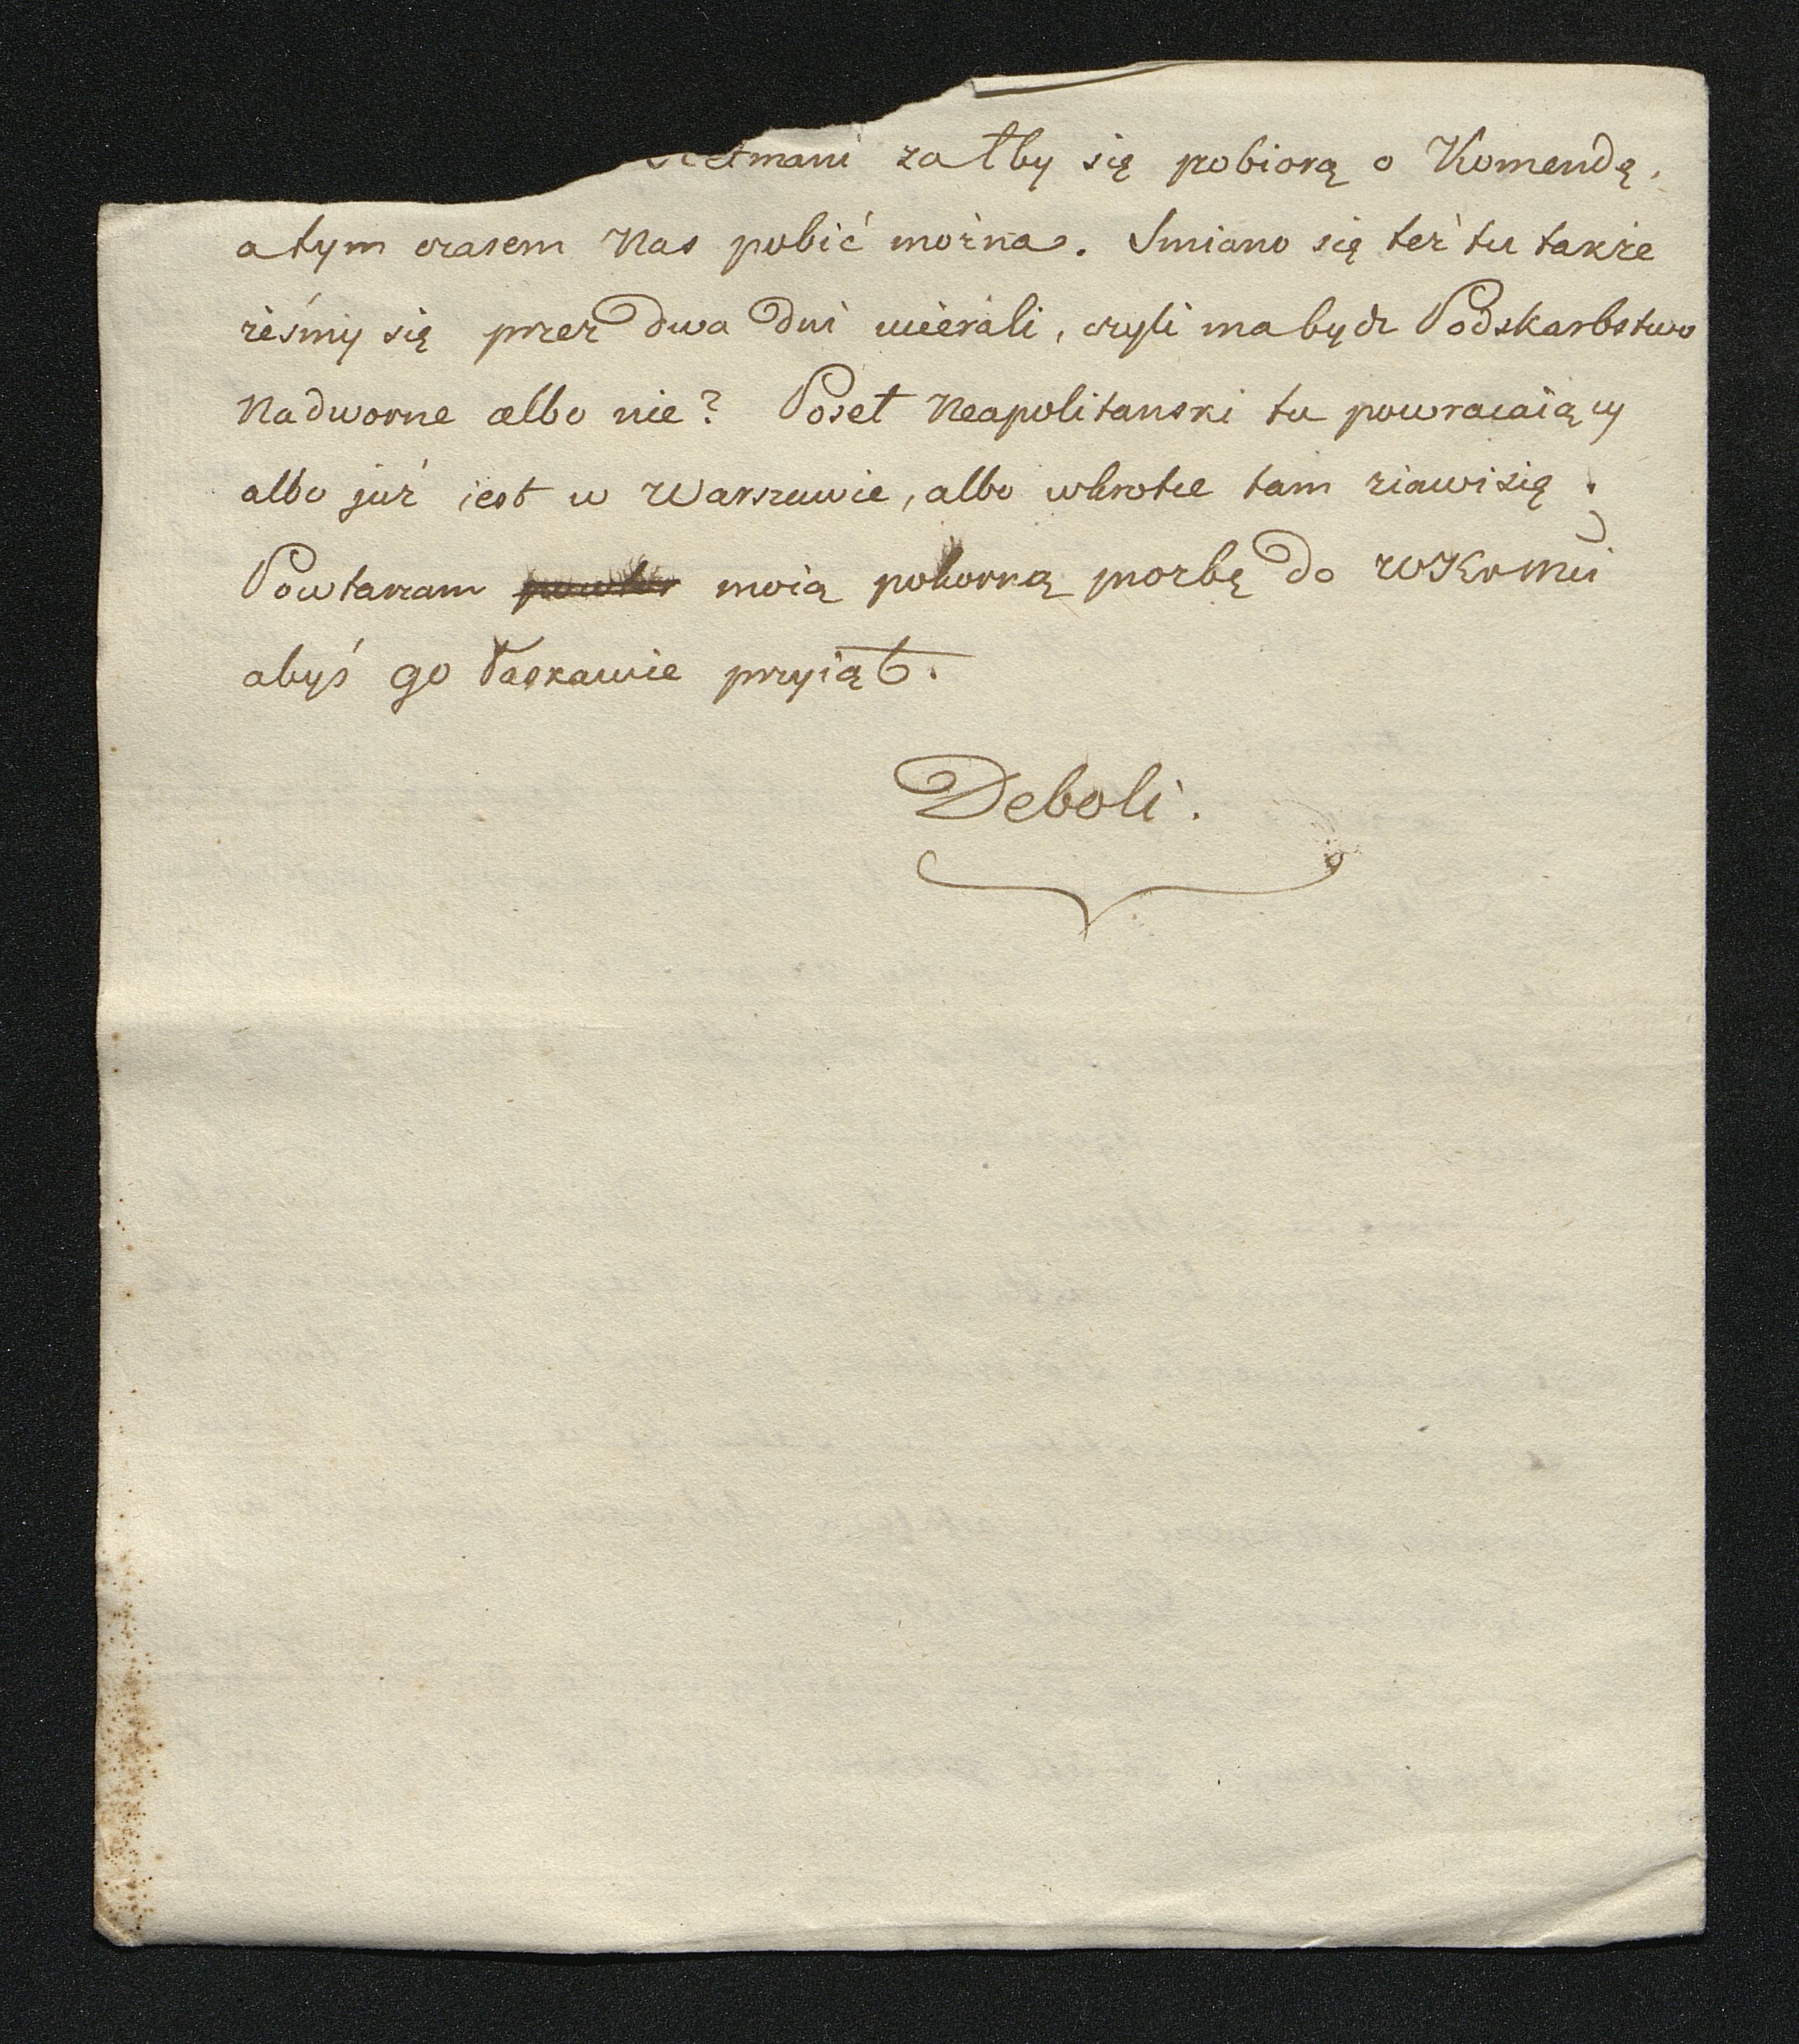 Hetmani za łby się pobiorą o Komendę,
a tym czasem Nas pobić można. Smiano się też tu także
żeśmy się przez dwa dni ucierali, czyli ma bydź Podskarbstwo
Nadworne albo nie? Poseł Neapolitanski tu powracaiący
albo już iest w Warszawie, albo wkrotce tam ziawi się.
Powtarzam moią pokorną prozbę do WKrMci
abyś go łaskawie przyiął.
Deboli.